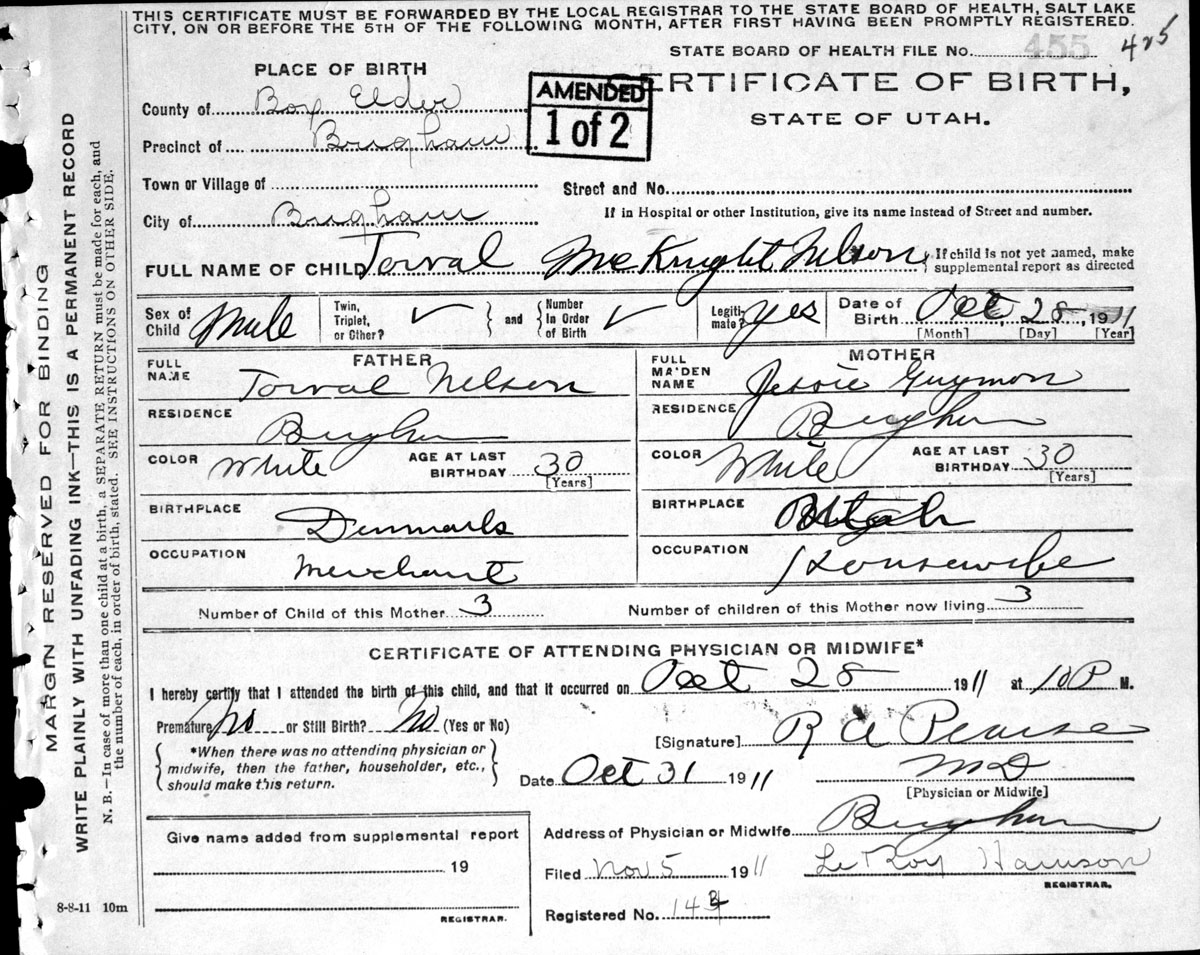 THIS CERTIFICATE MUST BE FORWARDED BY THE LOCAL REGISTRAR TO THE STATE BOARD OF HEALTH, SALT LAKE
CITY, ON OR BEFORE THE 5TH OF THE FOLLOWING MONTH, AFTER FIRST HAVING BEEN PROMPTLY REGISTERED.
STATE BOARD OF HEALTH FILE No. 455 425
PLACE OF BIRTH
AMENDED
1 of 2
ERTIFICATE OF BIRTH,
STATE OF UTAH.
County of Box Elder
Precinct of Brigham
Town or Village of
Street and No.
City of Brigham
If in Hospital or other Institution, give its name instead of Street and number.
FULL NAME OF CHILD Torval McKnight Nelson
If child is not yet named, make
supplemental report as directed
Sex of Child Male
Twin, Triplet, or Other? ✓ and Number In Order of Birth ✓
Legiti-mate? Yes
Date of Birth Oct, 28, 1911
[Month] [Day] [Year]
FATHER
FULL NAME Torval Nelson
MOTHER
FULL MAIDEN NAME Jessie Guymon
RESIDENCE Brigham
RESIDENCE Brigham
COLOR White AGE AT LAST BIRTHDAY 30
[Years]
COLOR White AGE AT LAST BIRTHDAY 30
[Years]
BIRTHPLACE Denmark
BIRTHPLACE Utah
OCCUPATION Merchant
OCCUPATION Housewife
Number of Child of this Mother 3
Number of children of this Mother now living 3
CERTIFICATE OF ATTENDING PHYSICIAN OR MIDWIFE*
I hereby certify that I attended the birth of this child, and that it occurred on Oct 28 1911 at 10 P M.
Premature No or Still Birth? No (Yes or No)
*When there was no attending physician or
midwife, then the father, householder, etc.,
should make this return.
[Signature] R A Pearse
M D
[Physician or Midwife]
Date Oct 31 1911
Give name added from supplemental report
19
REGISTRAR.
Address of Physician or Midwife Brigham
Filed Nov 5 1911
LeRoy Harrison
REGISTRAR.
Registered No. 14
8-8-11 10m
MARGIN RESERVED FOR BINDING
WRITE PLAINLY WITH UNFADING INK—THIS IS A PERMANENT RECORD
N. B.—In case of more than one child at a birth, a SEPARATE RETURN must be made for each, and
the number of each, in order of birth, stated. SEE INSTRUCTIONS ON OTHER SIDE.